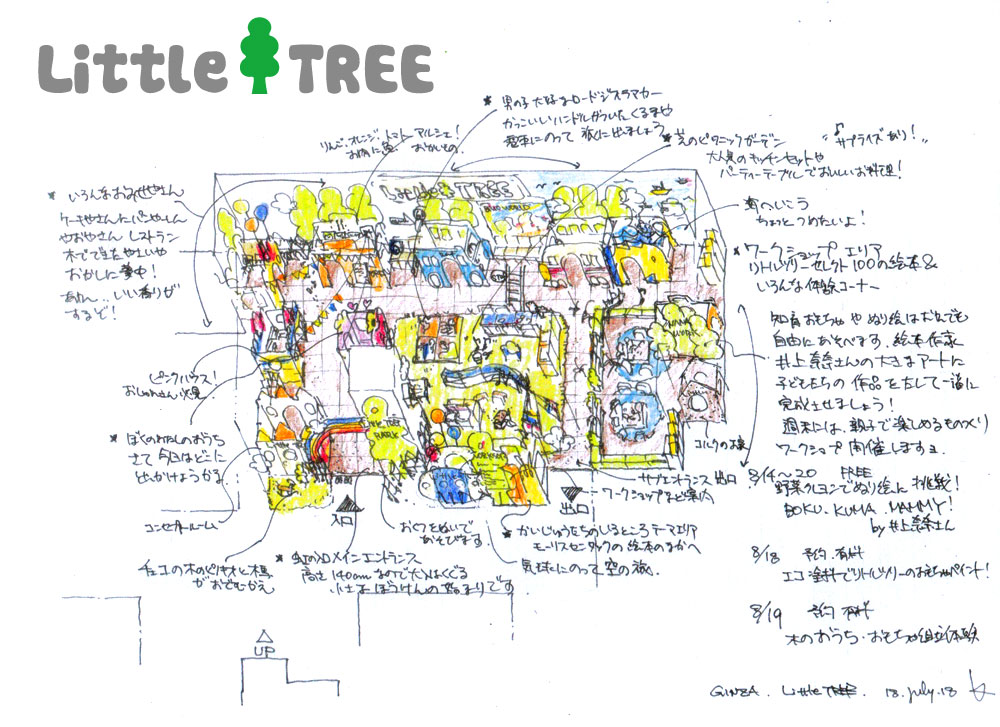 Little TREE
* 男の子大好きなロードジスラマカー
かっこいいハンドルがついたくるまや
電車にのって 旅に出ましょう
りんご・オレンジ・トマト アルシェ!
お肉に魚 おかいもの。
* えのピクニックガーデン
"サプライズあり!"
大人気のキッチンセットや
パーティーテーブルでおいしいお料理!
* いろんなおみせやさん
ケーキやさんにパンやさん
やおやさん レストラン
木でできたやさいや
おかしに夢中!
あれ.. いい香りが
するぞ!
Little TREE
海へいこう
ちょっとつめたいよ!
* ワークショップ エリア
リトルツリーセレクト100の絵本&
いろんな体験コーナー
知育おもちゃやぬり絵はだれでも
自由にあそべます。絵本作家
井上奈奈さんの大きなアートに
子どもたちの作品をたして一諸に
完成させましょう!
週末には、親子で楽しめるものづくり
ワークショップ開催しますョ
ピンクハウス!
おしゃれさん必見
* ぼくのわたしのおうち
さて今日はどこに
でかけようかな
LITTLE TREE
PARK
コルクのお家
コンセントルーム
入口
サブエントランス 出口
出口
ワークショップなど案内
おくつをぬいで
あそびます。
* かいじゅうたちのいるところ テーマエリア
モーリスセンダックの絵本のなかへ
気球にのって空の旅。
チェコの木のピノキオと馬
がおでむかえ
* 虹の入口メインエントランス
高さ140cmなので大人はくぐる
小さなぼうけんの始まりです
8/14〜20 FREE
野菜クレヨンでぬり絵に挑戦!
BOKU. KUMA. MAMMY!
by 井上奈奈さん
8/18 予約 有料
エコ塗料でリトルツリーのおもちゃペイント!
8/19 予約 有料
木のおうち・おもちゃ組立体験
UP
GINZA. Little TREE. 18. July. 18